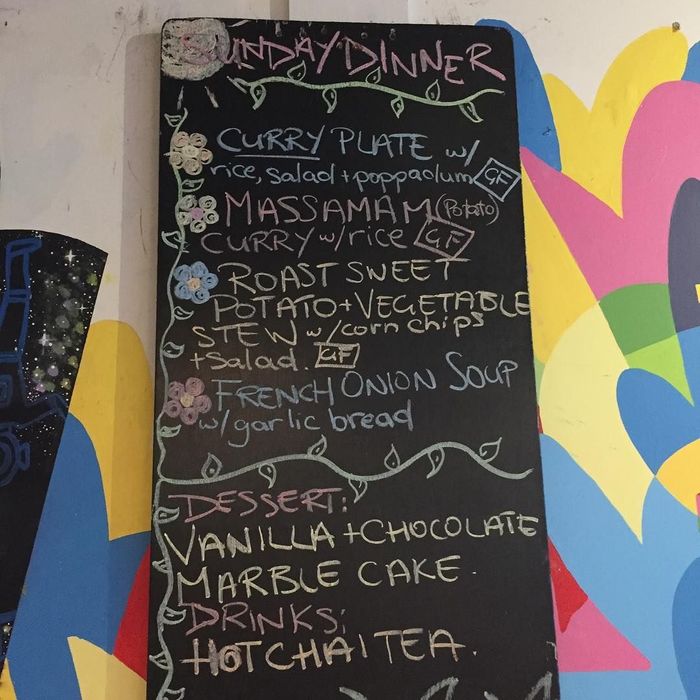 SUNDAY DINNER
CURRY PLATE w/
rice, salad + poppadum GF
MASSAMAM (Potato)
CURRY w/ rice GF
ROAST SWEET
POTATO + VEGETABLE
STEW w/ corn chips
+ salad. GF
FRENCH ONION SOUP
w/ garlic bread
DESSERT:
VANILLA + CHOCOLATE
MARBLE CAKE.
DRINKS:
HOT CHAI TEA.